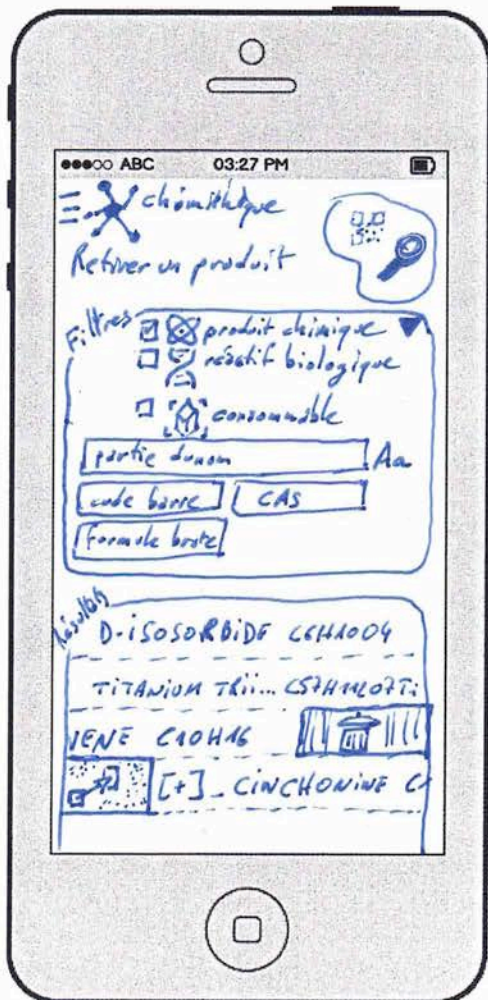 ABC 03:27 PM
chimithèque
Retirer un produit
Filtres
produit chimique
réactif biologique
consommable
partie du nom Aa
code barre CAS
formule brute
Résultats
D-iSOSORBiDE C6H10O4
TiTANiUM TRii... C57H112O7Ti
VENE C10H16
[+]_CiNCHONiNE C